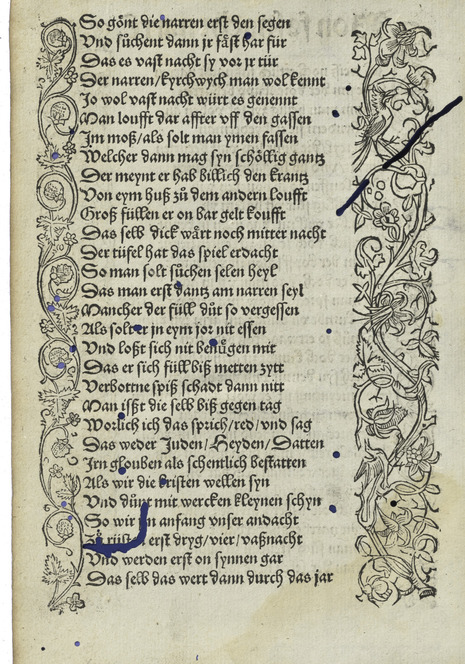 So gönt die narren erst den segen
Vnd süchent dann jr fäst har für
Das es vast nacht sy vor jr tür
Der narren/kyrchwych man wol kennt
Jo wol vast nacht würt es genennt
Man loufft dar affter vff den gassen
Jm moß/als solt man ymen fassen
Welcher dann mag syn schöllig gantz
Der meynt er hab billich den krantz
Von eym huß zů dem andern loufft
Groß füllen er on bar gelt koufft
Das selb dick wärt noch mitter nacht
Der tüfel hat das spiel erdacht
So man solt süchen selen heyl
Das man erst dantz am narren seyl
Mancher der füll düt so vergessen
Als solt er jn eym jor nit essen
Vnd loßt sich nit benügen mit
Das er sich füll biß metten zytt
Verbottne spiß schadt dann nitt
Man ißßt die selb biß gegen tag
Worlich ich das sprich/red/vnd sag
Das weder Juden/Heyden/Datten
Jrn glouben als schentlich bestatten
Als wir die kristen wellen syn
Vnd dünt mit wercken kleynen schyn
So wir jn anfang vnser andacht
erst dryg/vier/vaßnacht
Vnd werden erst on synnen gar
Das selb das wert dann durch das jar